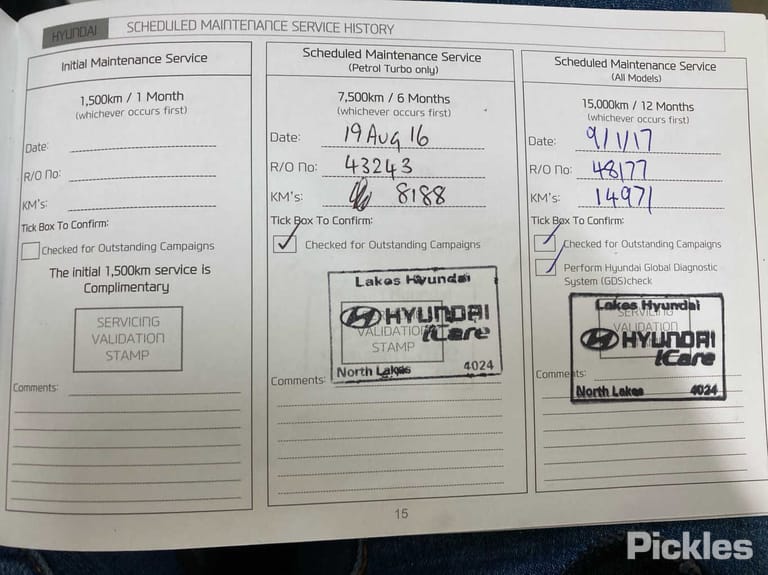 HYUNDAI SCHEDULED MAINTENANCE SERVICE HISTORY
Initial Maintenance Service
1,500km / 1 Month
(whichever occurs first)
Date:
R/O No:
KM's:
Tick Box To Confirm:
Checked for Outstanding Campaigns
The initial 1,500km service is
Complimentary
SERVICING
VALIDATION
STAMP
Comments:
Scheduled Maintenance Service
(Petrol Turbo only)
7,500km / 6 Months
(whichever occurs first)
Date: 19 Aug 16
R/O No: 43243
KM's: 8188
Tick Box To Confirm:
Checked for Outstanding Campaigns
Lakes Hyundai
HYUNDAI
VALIDATION
iCare
STAMP
North Lakes 4024
Comments:
Scheduled Maintenance Service
(All Models)
15,000km / 12 Months
(whichever occurs first)
Date: 9/1/17
R/O No: 48177
KM's: 14971
Tick Box To Confirm:
Checked for Outstanding Campaigns
Perform Hyundai Global Diagnostic
System (GDS)check
Lakes Hyundai
SERVICING
VALIDATION
HYUNDAI
iCare
North Lakes 4024
Comments:
15
Pickles